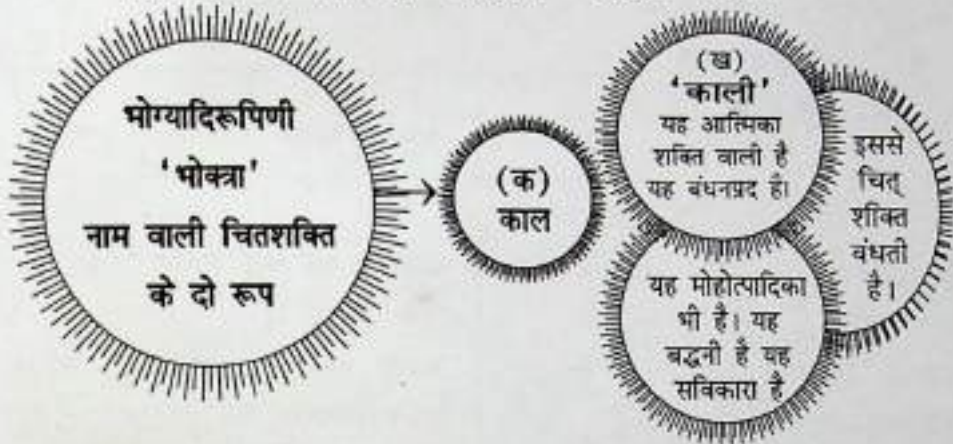 भोग्यादिरूपिणी
'भोक्त्रा'
नाम वाली चितशक्ति
के दो रूप
(क)
काल
(ख)
'काली'
यह आत्मिका
शक्ति वाली है
यह बंधनप्रद है।
यह मोहोत्पादिका
भी है। यह
बद्धनी है यह
सविकारा है
इससे
चित्
शक्ति
बंधती
है।